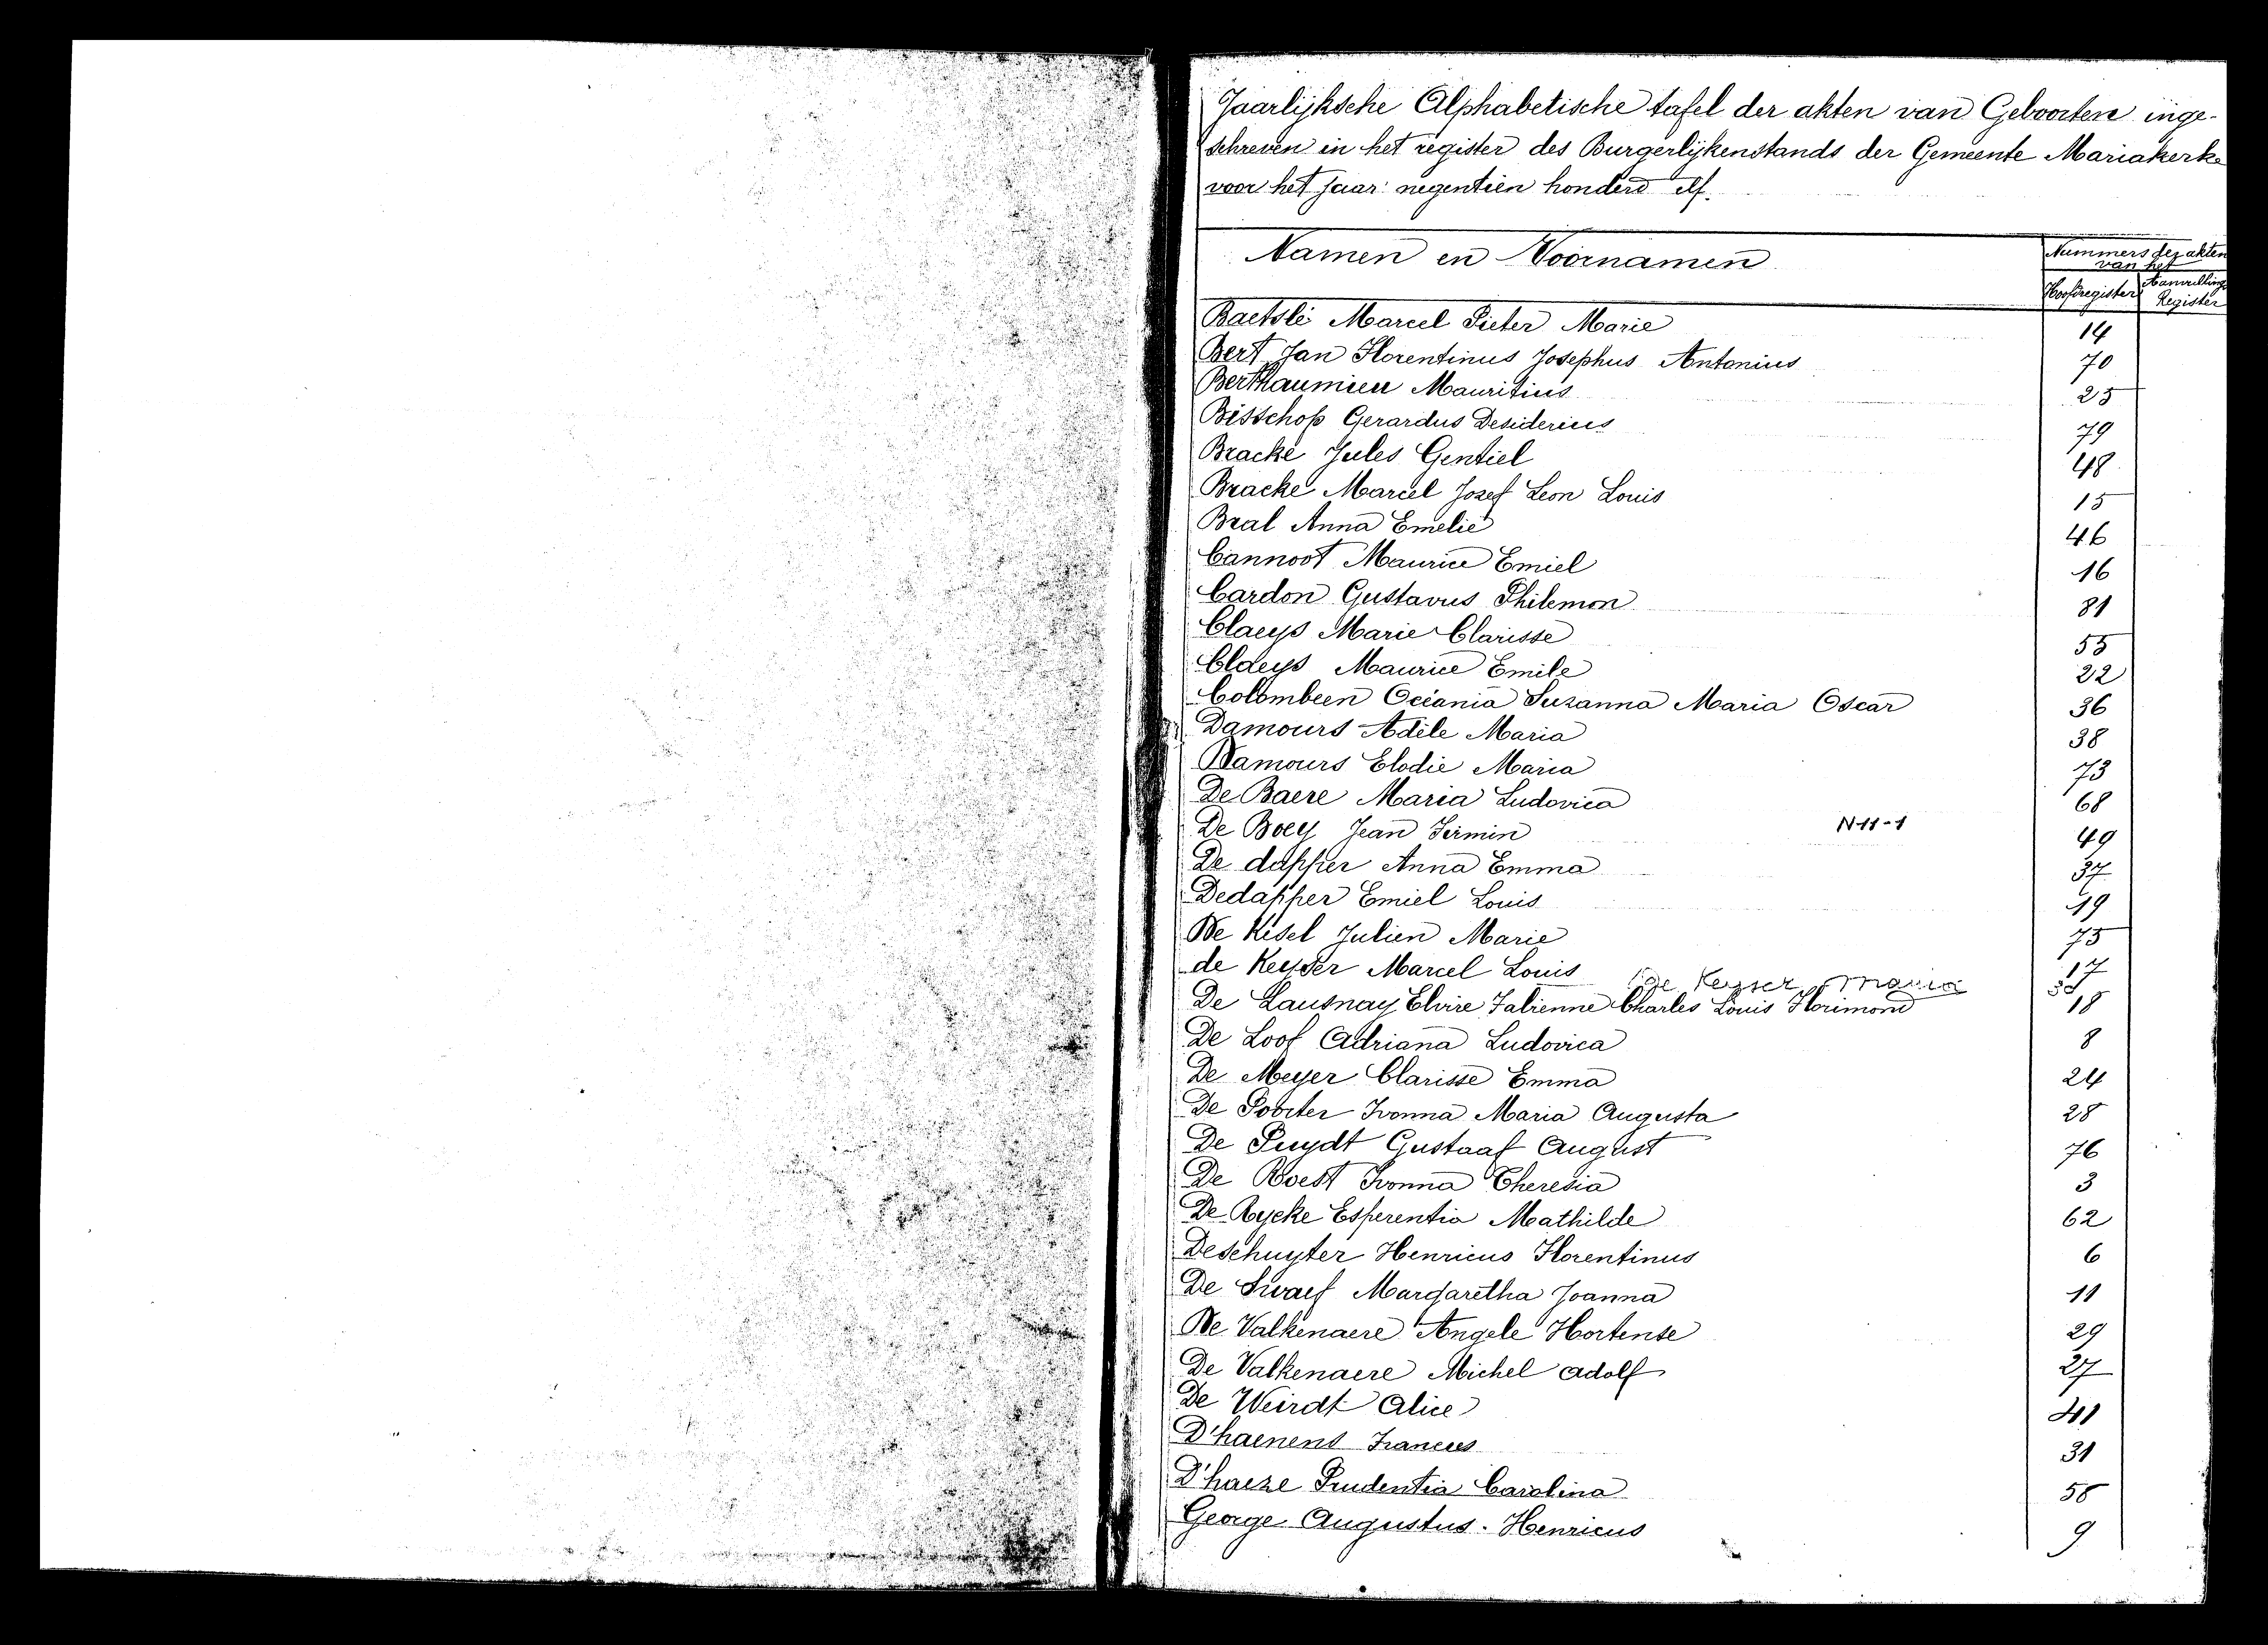 Jaarlijksche Alphabetische tafel der akten van Geboorten inge-
schreven in het register des Burgerlijkenstands der Gemeente Mariakerke
voor het jaar negentien honderd elf.
Namen en Voornamen
Nummers der akten
van het
Hoofdregister
Aanvulling
Register
Baetslé Marcel Pieter Marie 14
Bert Jan Florentinus Josephus Antonius 70
Berthaumieu Mauritius 25
Bisschop Gerardus Desiderius 79
Bracke Jules Gentiel 48
Bracke Marcel Jozef Leon Louis 15
Bral Anna Emelie 46
Cannoot Maurice Emiel 16
Cardon Gustavus Philemon 81
Claeys Marie Clarisse 55
Claeys Maurice Emile 22
Colombeen Océania Suzanna Maria Oscar 36
Damours Adèle Maria 38
Damours Elodie Maria 73
De Baere Maria Ludovica 68
De Boey Jean Firmin N 11-1 49
De dapper Anna Emma 37
Dedapper Emiel Louis 19
De Kesel Julien Marie 75
de Keyser Marcel Louis 17
De Keyser Maria
De Lausnay Elvire Fabienne Charles Louis Florimond 18
De Loof Adriana Ludovica 8
De Meyer Clarisse Emma 24
De Poorter Ivonna Maria Augusta 28
De Puydt Gustaaf August 76
De Roest Ivonna Theresia 3
De Rycke Esperentia Mathilde 62
Deschuyter Henricus Florentinus 6
De Swaef Margaretha Joanna 11
De Valkenaere Angele Hortense 29
De Valkenaere Michel Adolf 27
De Weirdt Alice 41
D'haenens Francies 31
D'haeze Prudentia Carolina 58
George Augustus. Henricus 9